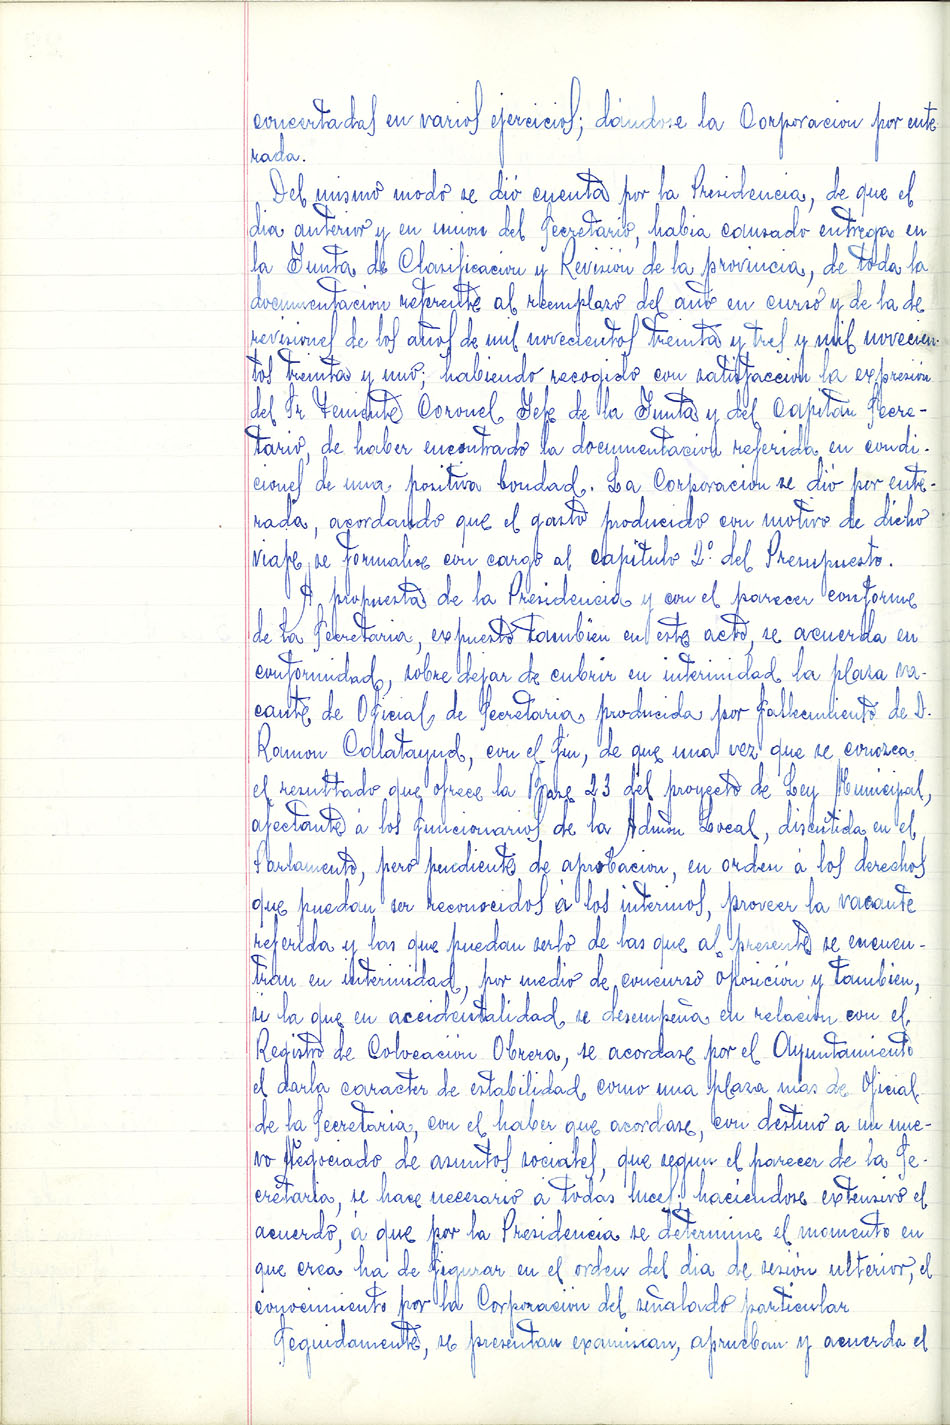 concertadas en varios ejercicios; dándose la Corporacion por ente-
rada.
Del mismo modo se dió cuenta por la Presidencia, de que el
dia anterior y en union del Secretario, habia causado entrega en
la Junta de Clasificacion y Revisión de la provincia, de toda la
documentacion referente al reemplazo del año en curso y de la de
revisiones de los años de mil novecientos treinta y tres y mil novecien-
tos treinta y uno; habiendo recogido con satisfaccion la expresión
del Sr Teniente Coronel Jefe de la Junta y del Capitan Secre-
tario, de haber encontrado la documentacion referida en condi-
ciones de una positiva bondad. La Corporacion se dió por ente-
rada, acordando que el gasto producido con motivo de dicho
viaje, se formalice con cargo al capitulo 2º del Presupuesto.
A propuesta de la Presidencia y con el parecer conforme
de la Secretaria, expuesto tambien en este acto, se acuerda en
conformidad, sobre dejar de cubrir en interinidad la plaza va-
cante de Oficial de Secretaria producida por fallecimiento de D.
Ramon Calatayud, con el fin, de que una vez que se conozca
el resultado que ofrece la Base 23 del proyecto de Ley Municipal,
afectante á los funcionarios de la Admon Local, discutida en el
Parlamento, pero pendiente de aprobacion, en orden á los derechos
que puedan ser reconocidos á los interinos, proveer la vacante
referida y las que puedan serlo de las que al presente se encuen-
tran en interinidad, por medio de concurso oposición y tambien,
si la que en accidentalidad se desempeña en relacion con el
Registro de Colocación Obrera, se acordase por el Ayuntamiento
el darla caracter de estabilidad como una plaza mas de Oficial
de la Secretaria, con el haber que acordase, con destino a un nue-
vo Negociado de asuntos sociales, que segun el parecer de la Se-
cretaria, se hace necesario á todas luces; haciendose extensivo el
acuerdo, á que por la Presidencia se determine el momento en
que crea ha de figurar en el orden del dia de sesión ulterior, el
conocimiento por la Corporacion del señalado particular
Seguidamente, se presentan examinan, aprueban y acuerda el